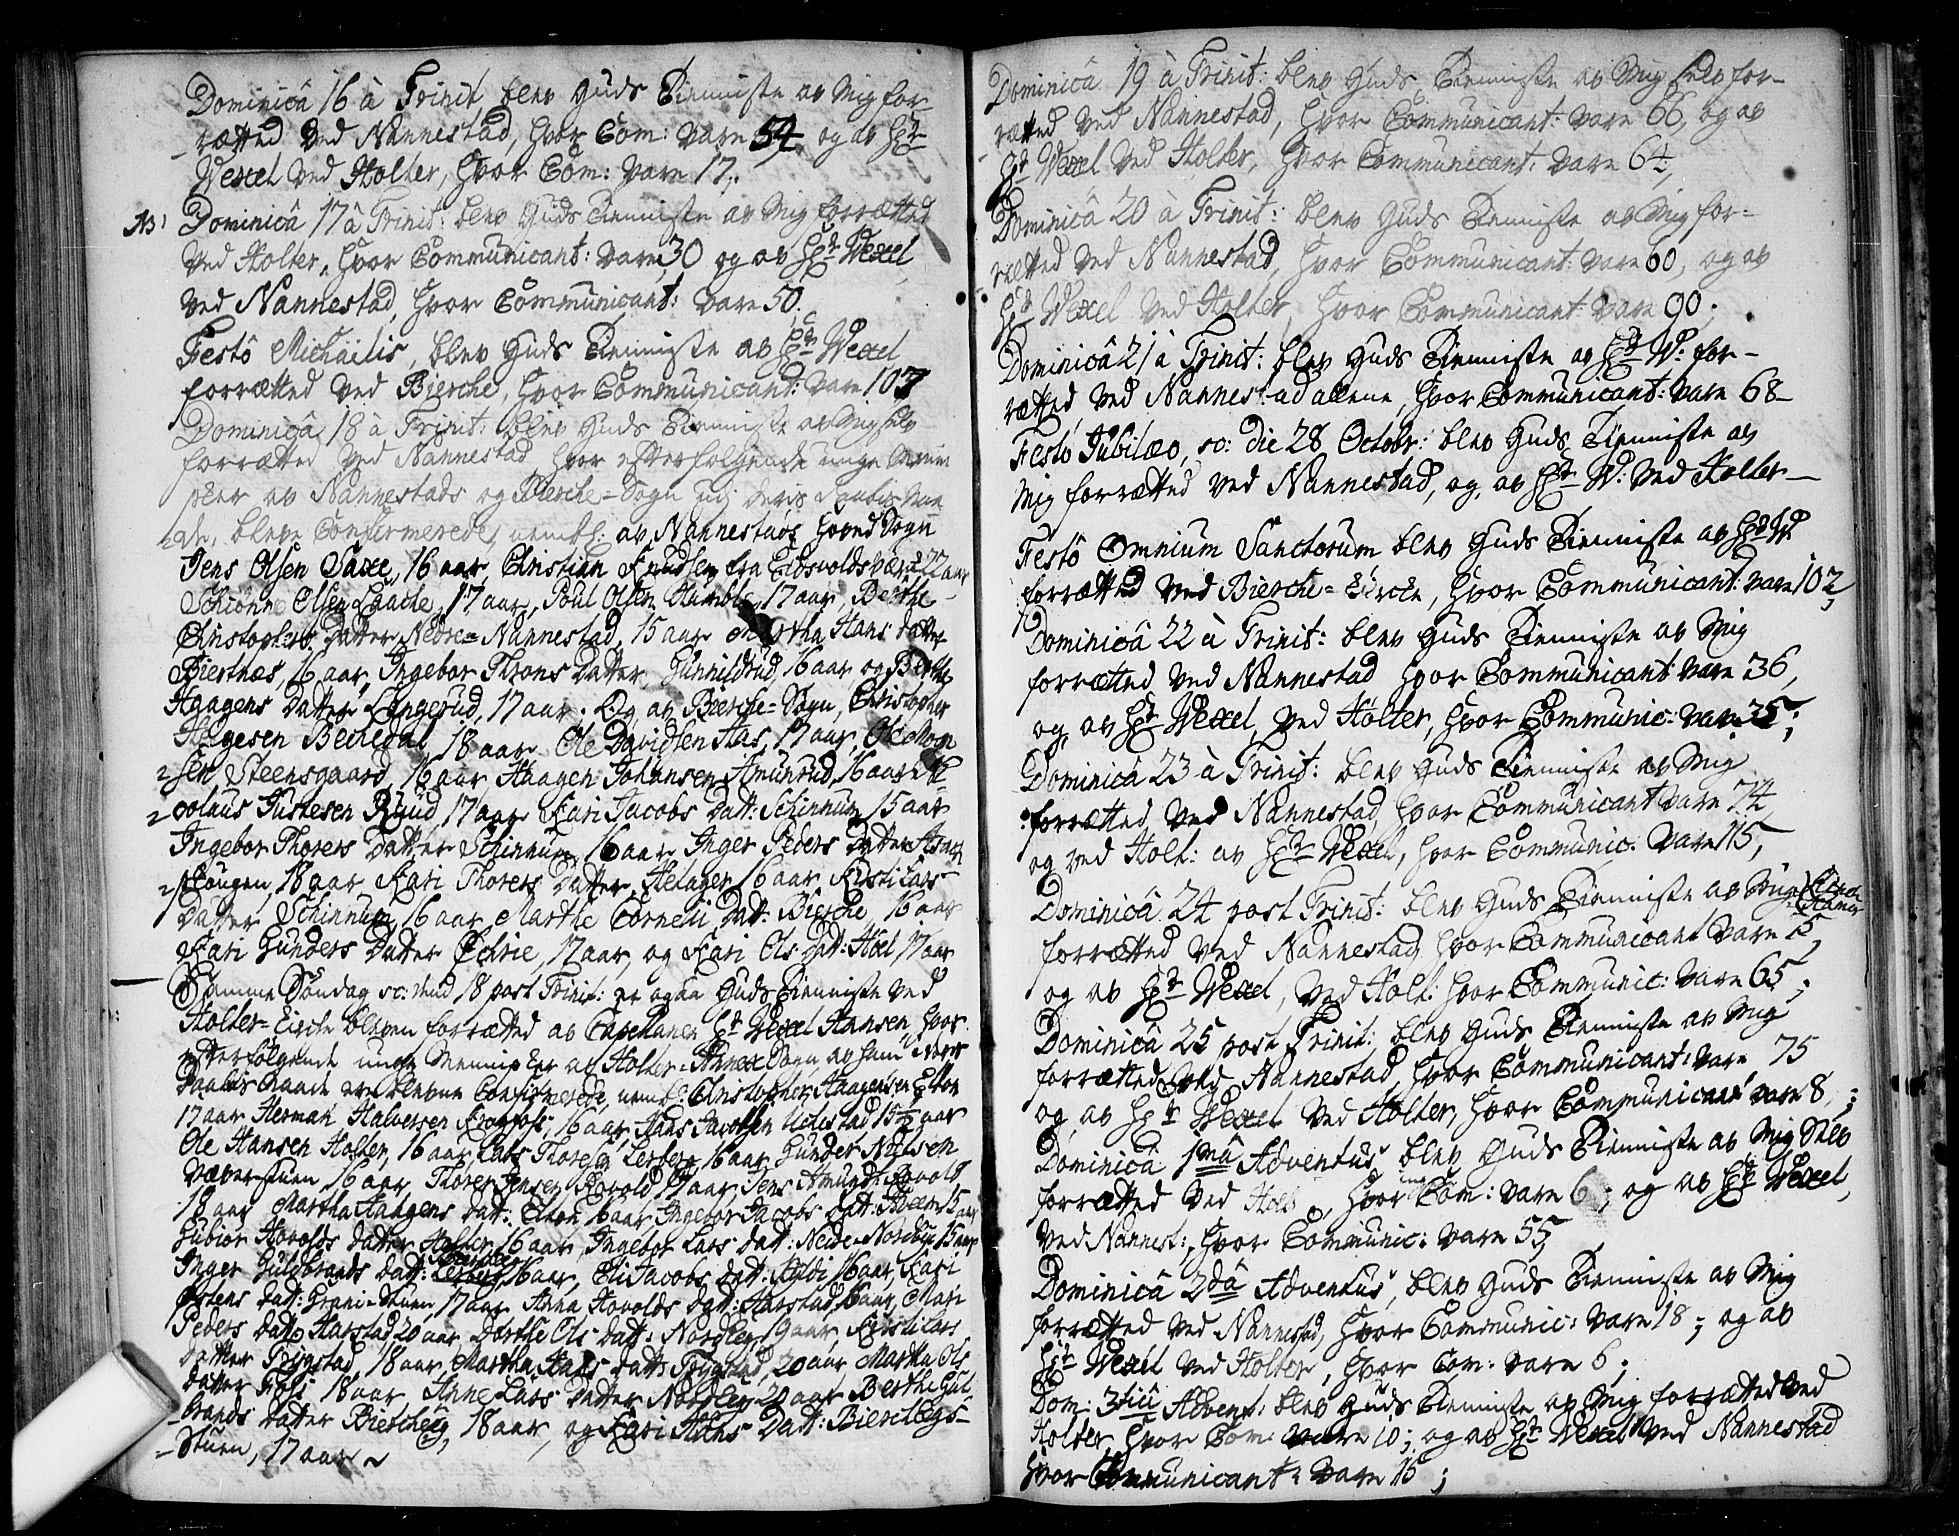 Dominicâ 16 à Trinit blev Guds Tienniste av Mig for-
rætted ved Nannestad, hvor Com: vare 54, og av Hr
Wexel ved Holter, hvor Com: vare 17.
NB Dominicâ 17 à Trinit: blev Guds Tienniste av Mig forrætted
ved Holter, hvor Communicant: vare 30 og av Hr Wexel
ved Nannestad, hvor Communicant: vare 50.
Festô Michäelis, blev Guds Tienniste av Hr Wexel
forrætted ved Bierche, hvor Communicant: vare 107
Dominicâ 18 à Trinit: blev Guds Tienniste av Mig selv
forrætted ved Nannestad hvor efterfølgende unge Menni
sker av Nannestads og Bierche-Sogn udi deris Daabis Naa-
de, bleve Confirmerede, nembl: av Nannestads Hoved Sogn
Jens Olsen Saxe, 16 aar, Christian Knudsen fra Eidsvolds værk 22 aar
Schiønne Olsen Laache, 17 aar, Poul Olsen Humble 17 aar, Berthe
Christophers Datter Nedre-Nannestad, 15 aar Hans Datter
Biertnæs, 16 aar, Ingebor Throns Datter Gunnildrud, 16 aar og Berthe
Haagens Datter Lingerud, 17 aar; Og av Bierche-Sogn, Christopher
Bechedal 18 aar Ole Davidsen Aas, 17 aar, Ole Mogn
sen Steensgaard, 16 aar Haagen Johansen Amunrud, 16 aar Ni-
colaus Justesen Ryud 17 aar Kari Jacobs Datt: Schinnum 15 aar
Ingebor Thorers Datter Schinnum 16 aar Inger Peders Datter
skougen, 18 aar Kari Thorers Datter, Helager 16 aar Kisti Lars
Datter Schinnum, 16 aar Marthe Corneli Datt: Bierche 16 aar
Kari Gunders Datter Echrie, 17 aar, og Kari Ols Datt: Hoel 17 aar
Samme Søndag sc: 18 post Trinit: er ogsaa Guds Tienniste ved
Holter-Kirche bleven forrætted av Capellanen Hr Wexel Hansen, hvor
efterfølgende unge Mennisker af Holter-Annex Sogn,
Daabis Naade er blevne Confirmerede, nembl: Christopher Haagensen Elton
17 aar Herman Halversen 16 aar, Hans Jacobsen 15½ aar
Ole Hansen Holter, 16 aar, Lars Thoresen Lerberg 16 aar Gunder Nielsen
Wæverstuen 16 aar Thorer Jensen 17 aar Jens Amunds
18 aar Martha Haagens Datt: Elton 16 aar Ingebor Jacobs Datt: 15 aar
Gubior Hovolds Datter Holter 16 aar, Ingebor Lars Datt: Nedre-Nordbye 15 aar
Inger Guldbrands Datt: 16 aar, Eli Jacobs Datt: 16 aar, Kari
Østens Datt: Grani-Stuen, 17 aar Anna Hovolds Datt: Harstad 16 aar Mari
Peders Datt: Harstad 20 aar, Dorthe Ols Datt: 19 aar Kisti Lars
Datter Trygstad, 18 aar Martha Hans Datt: Trygstad, 20 aar Martha Ols
Datter 18 aar Anne Lars Datter 20 aar Berthe Gul
brands Datter 18 aar, og Kari Hans Datt:
Stuen, 17 aar
Dominicâ 19 à Trinit: blev Guds Tienniste av Mig selv for-
rætted ved Nannestad, hvor Communicant: vare 66, og av
Hr Wexel ved Holter, hvor Communicant: vare 64,
Dominicâ 20 à Trinit: blev Guds Tienniste av Mig for-
rætted ved Nannestad, hvor Communicant: vare 60, og av
Hr Wexel ved Holter, hvor Communicant: vare 90;
Dominicâ 21 à Trinit: blev Guds Tienniste av Hr W: for-
rætted ved Nannestad allene, hvor Communicant: vare 68-
Festô Jubilæo, sc: die 28 Octobr: blev Guds Tienniste av
Mig forrætted ved Nannestad, og av Hr W: ved Holter-
Festô Omnium Sanctorum blev Guds Tienniste av Hr W
forrætted ved Bierche-Kirche, hvor Communicant: vare 102,
Dominicâ 22 à Trinit: blev Guds Tienniste av Mig
forrætted ved Nannestad hvor Communicant: vare 36,
og av Hr Wexel, ved Holter, hvor Communic: vare 35;
Dominicâ 23 à Trinit: blev Guds Tienniste av Mig
forrætted ved Nannestad, hvor Communicant vare 74
og ved Holt: av Hr Wexel, hvor Communic: vare 115,
Dominicâ 24 post Trinit: blev Guds Tienniste av Mig
forrætted ved Nannestad hvor Communicant vare 15,
og av Hr Wexel, ved Holt: hvor Communic: vare 65;
Dominicâ 25 post Trinit: blev Guds Tienniste av Mig
forrætted ved Nannestad, hvor Communicant: vare 75
og av Hr Wexel ved Holter, hvor Communicant vare 8,;
Dominicâ 1mâ Adventus blev Guds Tienniste av Mig Selv
forrætted ved Holt, hvor Com: vare 6; og av Hr Wexel,
ved Nannest:, hvor Communic: vare 55,
Dominicâ 2dâ Adventus, blev Guds Tienniste av Mig
forrætted ved Nannestad, hvor Communic: vare 18; og av
Hr Wexel ved Holter, hvor Com: vare 6;
Dom: 3tiâ Advent: blev Guds Tienniste av Mig forrætted ved
Holter hvor Com: vare 10; og av Hr Wexel ved Nannestad
hvor Communicant: vare 15;